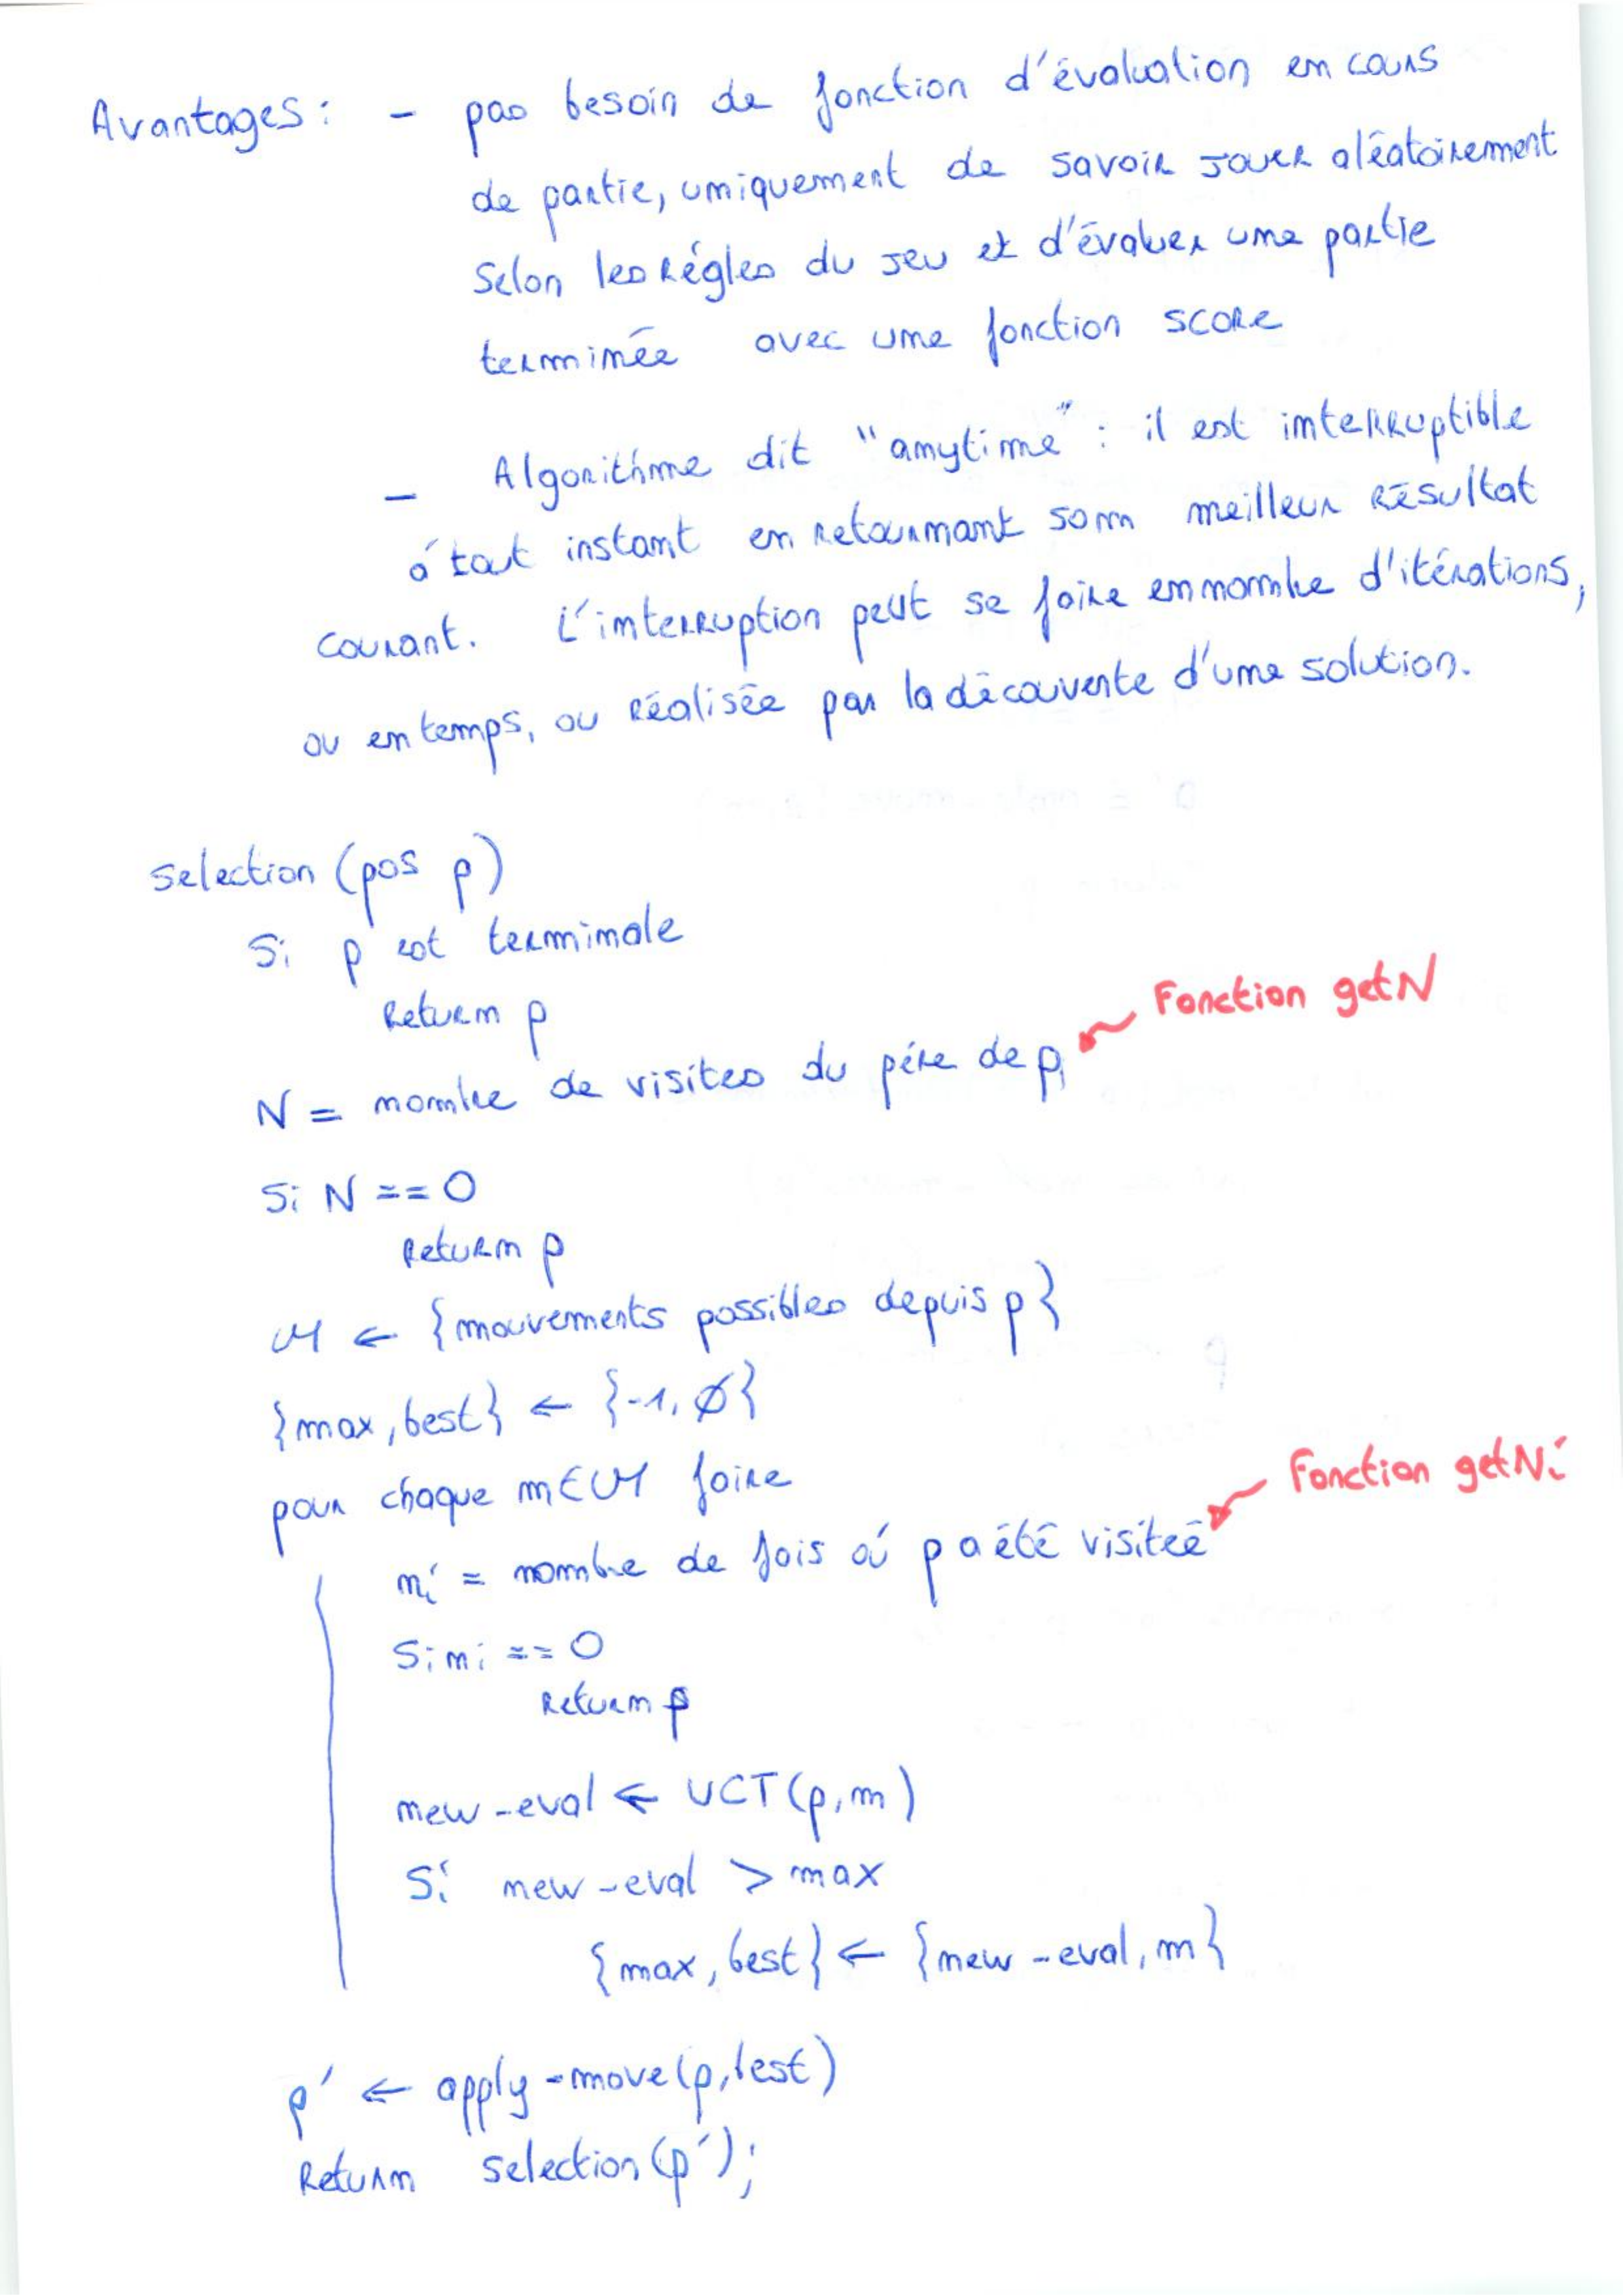 Avantages : - pas besoin de fonction d'évaluation en cours
de partie, uniquement de savoir jouer aléatoirement
selon les règles du jeu et d'évaluer une partie
terminée avec une fonction score
- Algorithme dit "anytime" : il est interruptible
à tout instant en retournant son meilleur résultat
courant. L'interruption peut se faire en nombre d'itérations,
ou en temps, ou réalisée par la découverte d'une solution.
selection (pos p)
Si p est terminale
Return p
Fonction getN
N = nombre de visites du père de p
Si N == 0
Return p
M ← {mouvements possibles depuis p}
{max, best} ← {-1, Ø}
pour chaque m ∈ M faire
Fonction getNi
ni = nombre de fois où p a été visitée
Si ni == 0
Return p
new-eval ← UCT(p,m)
Si new-eval > max
{max, best} ← {new-eval, m}
p' ← apply-move(p,best)
Return selection(p');